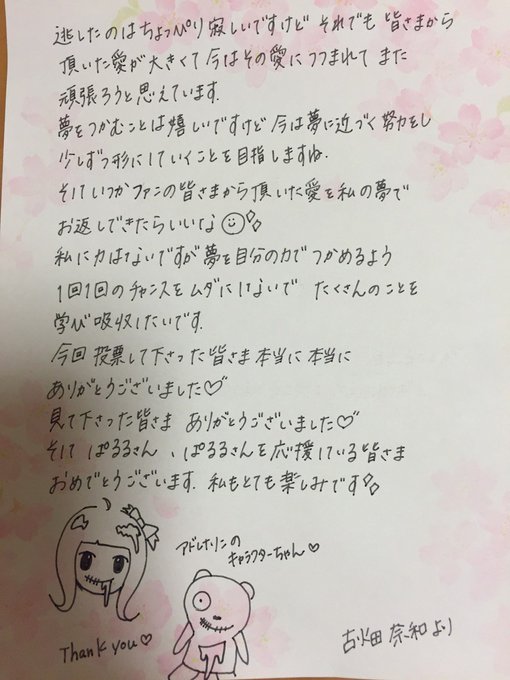 逃したのはちょっぴり寂しいですけど それでも 皆さまから
頂いた愛が大きくて 今はその愛につつまれて また
頑張ろうと思えています.
夢をつかむことは嬉しいですけど 今は夢に近づく努力をし
少しずつ形にしていくことを目指しますね.
そしていつかファンの皆さまから頂いた愛を私の夢で
お返しできたらいいな
私に力はないですが夢を自分の力でつかめるよう
1回1回のチャンスをムダにしないで たくさんのことを
学び吸収したいです.
今回投票して下さった皆さま本当に本当に
ありがとうございました♡
見て下さった皆さま ありがとうございました♡
そして ぱるるさん、ぱるるさんを応援している皆さま
おめでとうございます. 私もとても楽しみです
アドレナリンの
キャラクターちゃん♡
Thank you♡
古畑奈和より